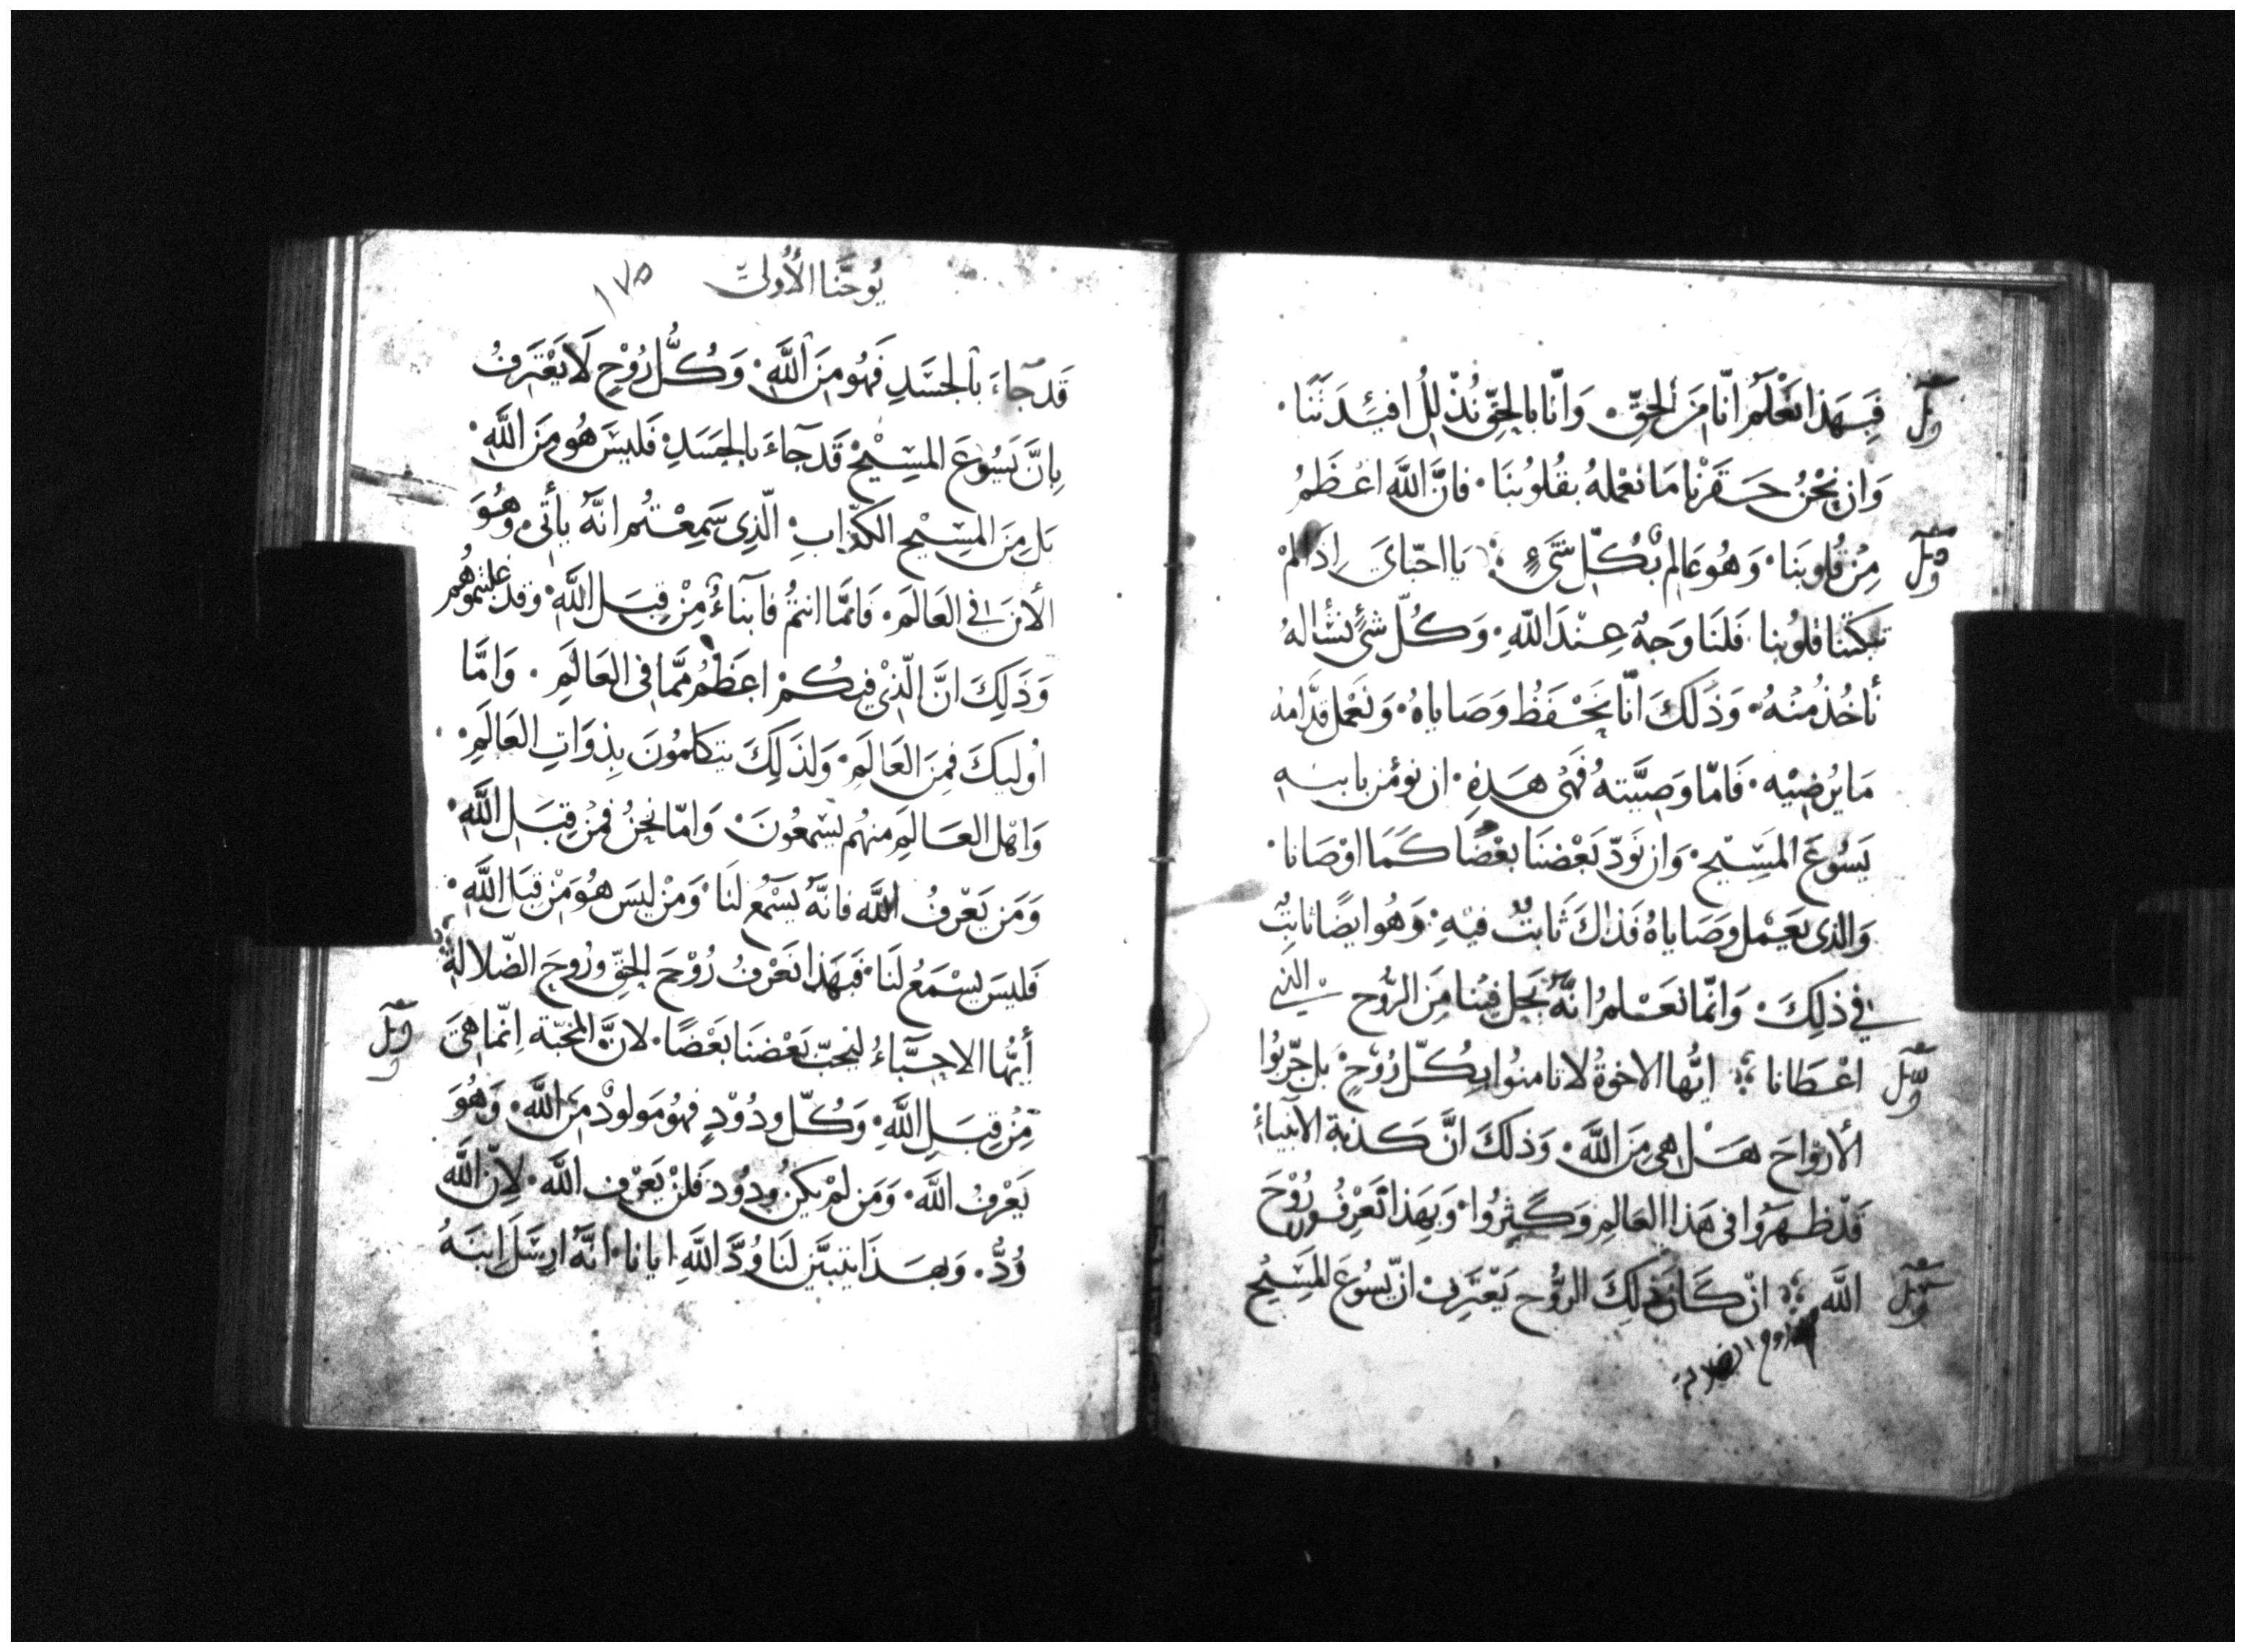 فَبِهَذا نَعْلَمُ انّا مِنَ الحَقِّ. وَانّا بالحَقِّ نُذَلِلُ افئِدَتَنَا.
وَان نَحْنُ حَقَرْنا مَا نعْملهُ بقُلوُبُنَا. فانَّ اللَّهَ اعْظَمُ
مِنْ قُلوبنَا. وَهُو عَالِم بْكُلّ شَيءٍ يَا احبّايَ إذا لمْ
تبَكتنا قلوُبنا فلنَا وَجهٌ عِنْدَ اللّهِ. وَكُلّ شئٍ نسُالهُ
نأخُذُ منْهُ. وَذَلكَ انّا نَحْفَظُ وصَاياهُ. وَنَعْمل قدَّامهُ
مَا يُرْضيْه. فَامّا وَصيَّتهُ فَهى هَذهِ. ان نؤمن بابنهِ
يَسُوعَ المَسْيح. وَان نَودّ بَعْضنَا بعْضًا كمَا اوْصَانا.
وَالذى يعَمْل وصَاياهُ فَذاكَ ثَابتٌ فيْهِ. وَهُو ايضًا ثابتٌ
في ذلِكَ. وَانمّا نعَسْلمُ انَّهُ يَحل فينا مِنَ الرُّوح الّذي
اعْطَانا ايُّها الاخوةُ لا تامنوُا بِكُلّ رُوْحٍ بَل جّربُوا
الأرْوَاحَ هَل هِى مِنَ اللَّه. وَذلكَ انَّ كذبة الأنبياءِ
قَدْ ظهَرُوا فى هَذا العَالم وَكثِرُوا. وَبِهَذا تَعرِفُون رُوْحَ
اللَّه انْ كَانَ ذلِكَ الرُّوح يَعْتَرِف انّ يسُوعَ المسَيْح
يُوحَنا الأُولى ١٧٥
قَد جَاءَ بالجسَدِ فَهُو مِنَ اللَّهِ. وَكُلُّ رُوْحٍ لَا يَعْتَرفُ
بِانَّ يَسُوعَ المسِيْحْ قَد جَاءَ بالجسَدِ فَليسَ هُو مِنَ اللَّهِ.
بَل مِنَ المسِيْح الكذّابِ. الّذِى سَمِعْتُم انَّهُ يأتى. وَهُوَ
الأنَ في العَالَمَ. فَامَّا انتمُ فآبناءُ مِنْ قِبَل اللَّه. وقد غلبتموُهُم
وَذَلِكَ انَّ الّذىْ فيكُمْ اعظَمُ ممَّا فى العَالَمِ. وَامَّا
اُوليكَ فمِنَ العَالَم. وَلذَلِكَ يتكلمُونَ بِذوَاتِ العَالَمِ.
وَاهْل العَالَمِ منهُم يسْمعُونَ. وَامّا نحنُ فمِنْ قِبَل اللَّهِ.
وَمَن يَعْرفُ اللَّه فانَّهُ يَسْمعُ لنَا. وَمَنْ ليسَ هُوَ مِنْ قبَل اللَّهِ.
فَليسَ يسْمَعُ لنَا. فَبِهَذا نَعْرفُ رُوْحَ الحَقِّ وَرُوحَ الضّلالةِ
أيُّها الاحِبَّآءُ لنحبّ بَعْضنَا بَعْضًا. لانَّ المحَبّة اِنّما هيَ
مِنْ قِبَلِ اللَّهِ. وَكُلّ ودُوْدٍ فهوُ مَولودْ مِنَ اللَّه. وَهُوَ
يَعْرفُ اللَّه. وَمَن لمْ يكنُ ودُوْدَ فَلنْ يَعْرِف اللَّه. لانّ اللَّه
وُدٌّ. وَبهَذَا يتبيَّن لنَا وُدَّ اللَّهِ ايانا. انَّهُ ارسَلَ ابنَهُ